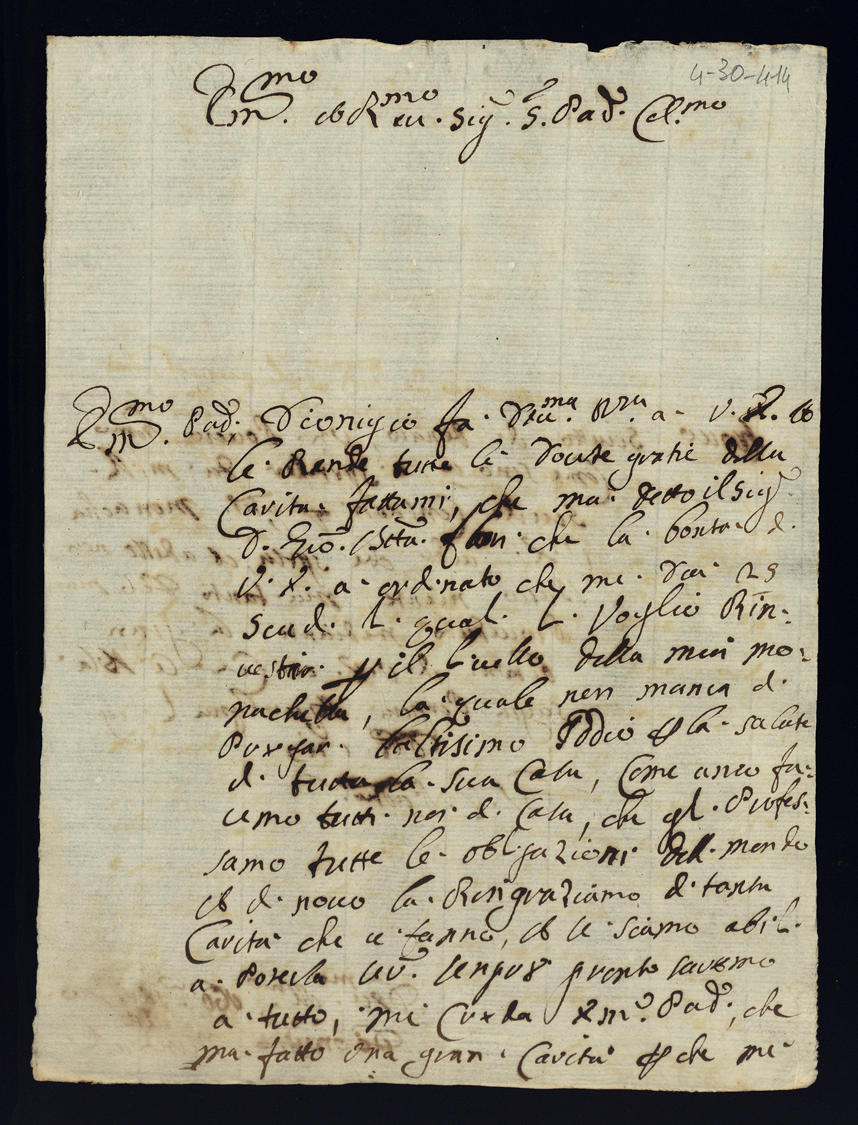 4-30-414
Em.mo et R.mo Sig.r S. Pad. Col.mo
Em.mo Pad. Dionigio fa Um.ma R.za a V. E. et
le Rende tutte le dovute gratie della
Carita fattami, che ma detto il Sig.
D. Gio. Btta. che la bonta di
V. E. a ordinato che me dia 25
Scudi li quali li voglio Rin-
vestir p il livello della mia mo-
nachella, la quale non manca di
Preggar laltisimo Iddio p la salute
di tutta la sua Casa, Come anco fa-
cemo tutti noi di Casa, che gli Profes-
samo tutte le obligazioni del mondo
et di novo la Ringraziamo di tanta
Carita che ce fanno, et se siamo abili
a Poterla servi senper pronto saremo
a tutto, mi Creda Em. Pad., che
ma fatto una gran Carita p che me